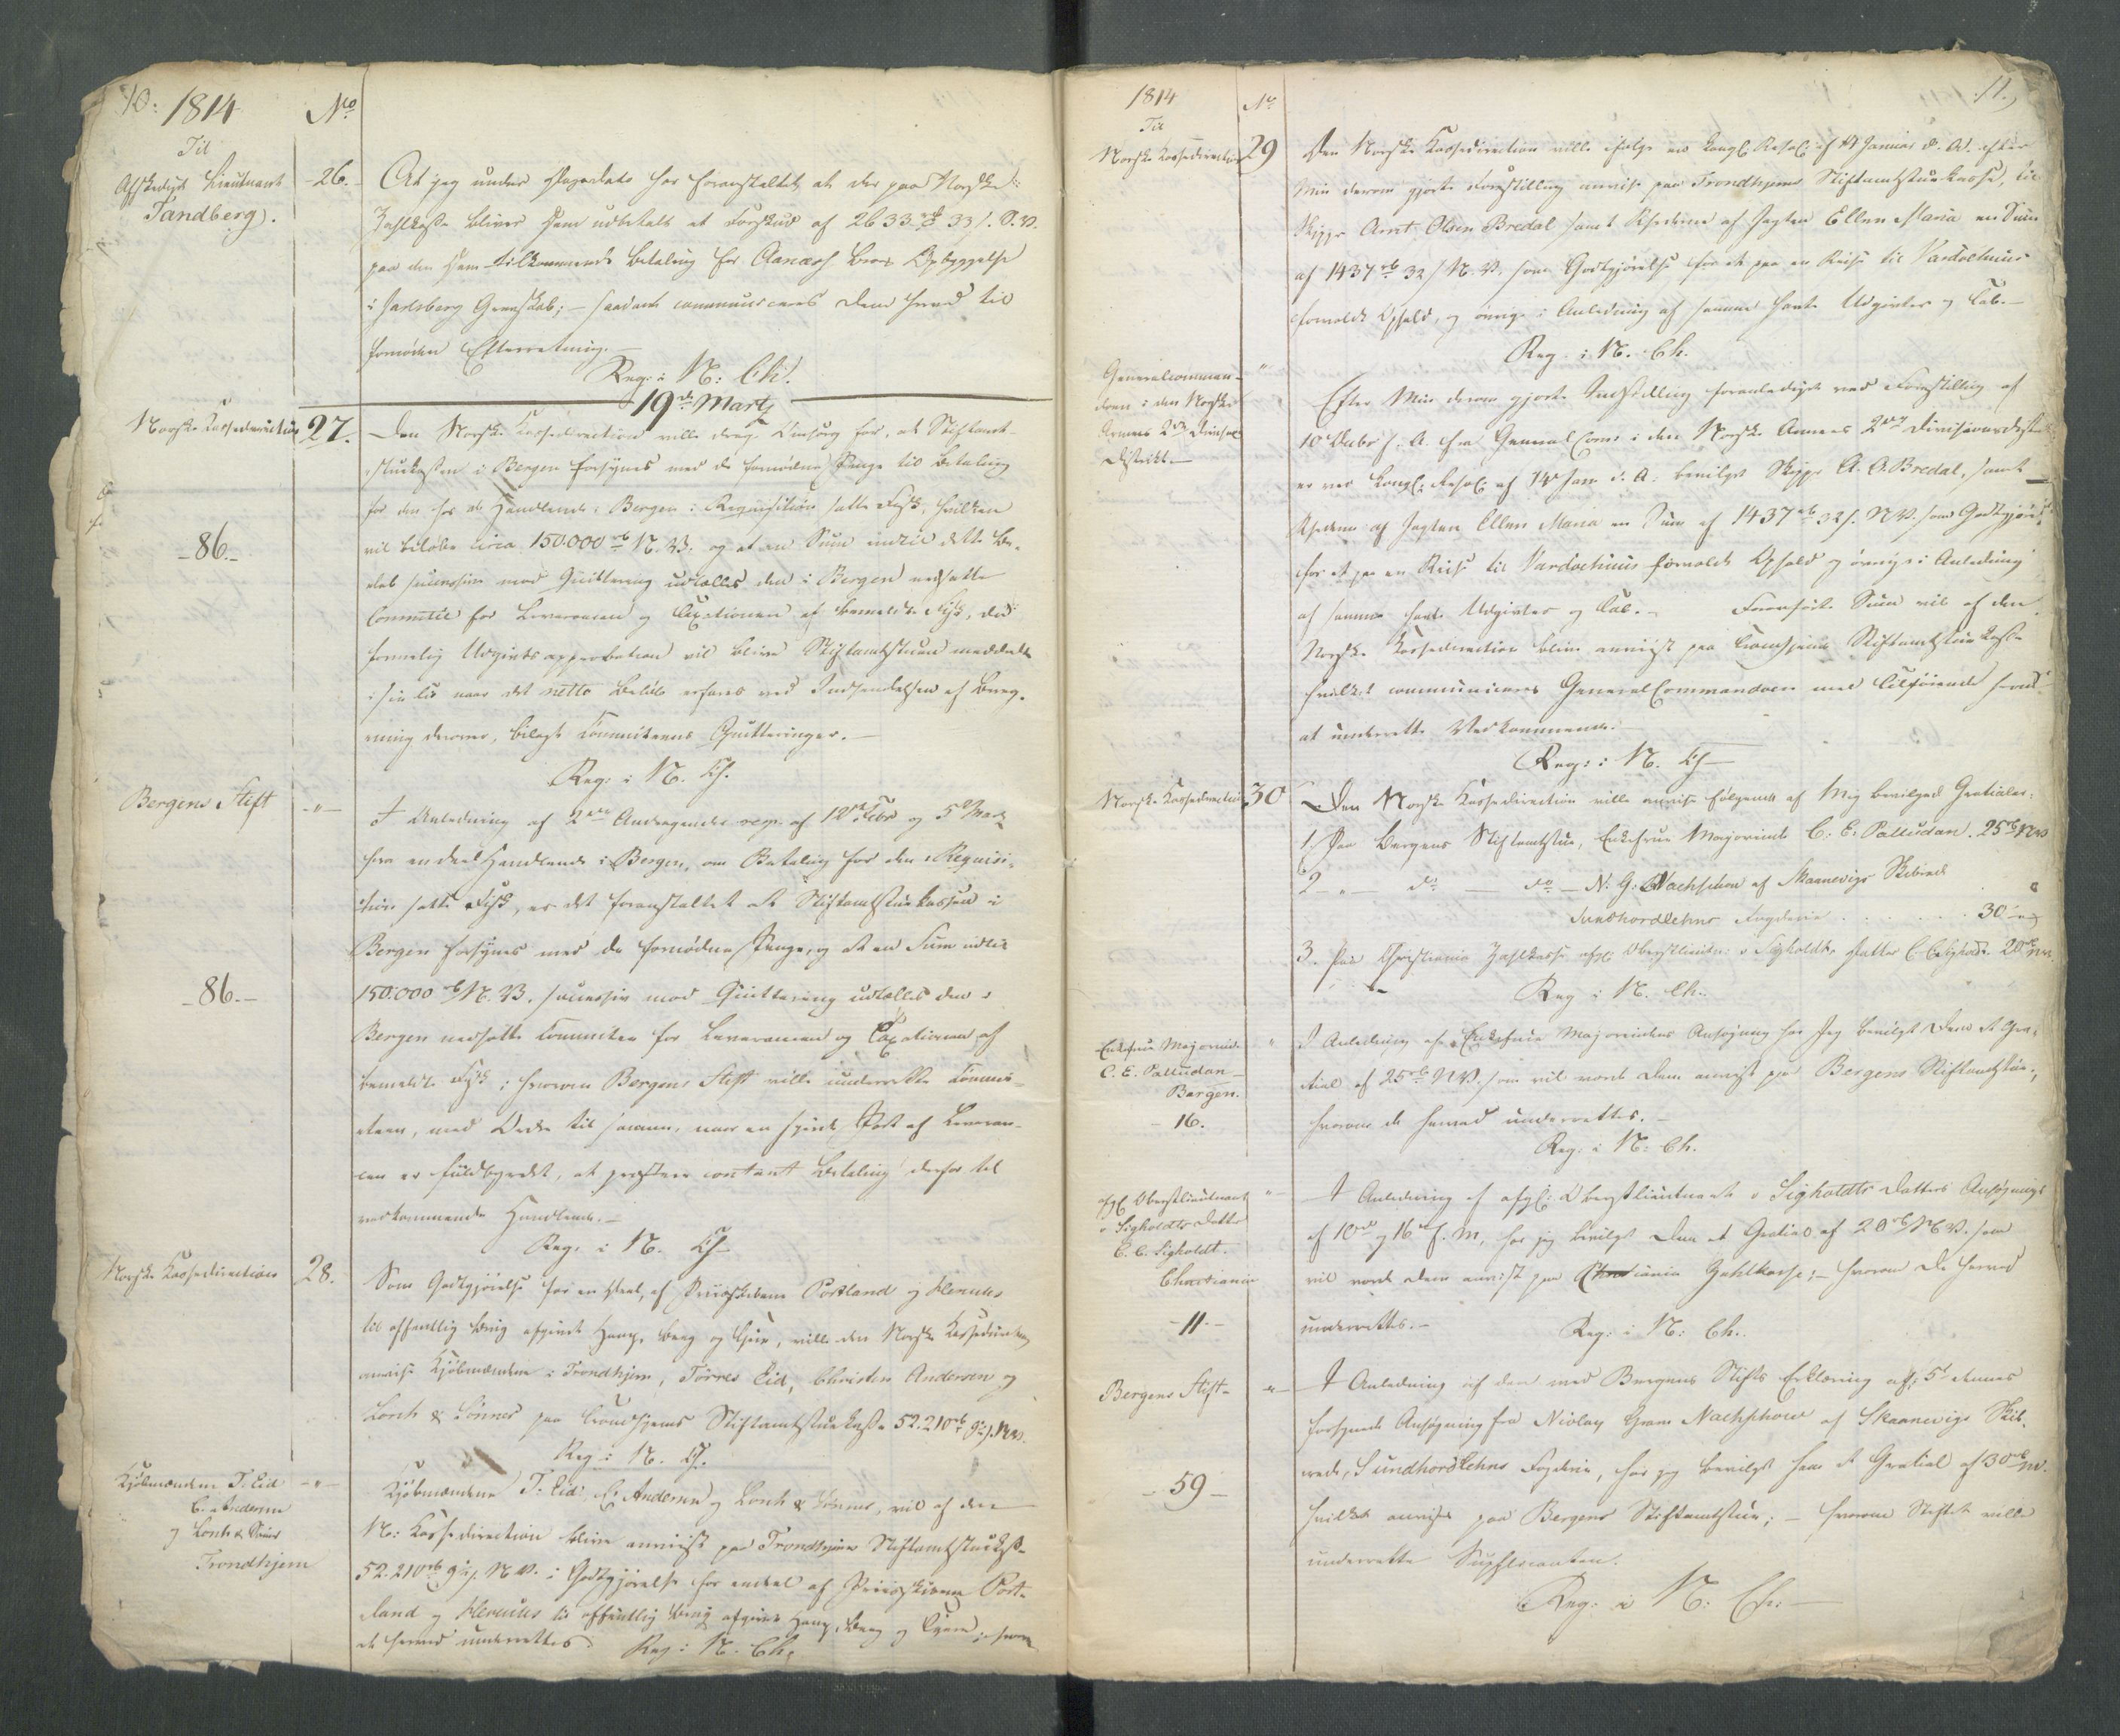 10. 1814
No
Til
Afskediget Lieutnant
Sandberg.
26.
At jeg under Dagsdato har foranstaltet at der paa Norske
Zahlkasse bliver ham udbetalt et Forskud af 2633 rb 33 s. N.V.
paa den ham tilkommende Betaling for Aanæss Broes Opbyggelse
i Jarlsberg Grevskab; – saadant communiceres dem herved til
fornøden Efterretning. –
Reg: i N: Ch:
19de Marts
Norske Kassedirection
27.
Den Norske Kassedirection ville drage Omsorg for, at Stiftamt-
stuekassen i Bergen forsynes med de fornødne Penge til Betaling
for den hos de Handlende i Bergen i Requisition satte Fisk, hvilken
vil beløbe circa 150.000 rb N.V. og at en Sum indtil dette Be-
løb successive mod Quittering udtælles den i Bergen nedsatte
Committé for Leverancen og Taxationen af bemeldte Fisk, da
formelig Udgivts approbation vil blive Stiftamtstuen meddeelt
i sin Tid naar det netto Beløb erfares ved Indsendelsen af Bereg-
ning derover, bilagt Committeens Quitteringer. –
Reg: i N. Ch.
–86.–
Bergens Stift
– " –
I Anledning af 2de Andragender resp. af 12te Febr og 5te Marts
fra endeel Handlende i Bergen, om Betaling for den i Requisi-
tion satte Fisk, er det foranstaltet at Stiftamtstuekassen i
Bergen forsynes med de fornødne Penge, og at en Sum indtil
150.000 rb N.V. successive mod Quittering udtælles den i
Bergen nedsatte Committee for Leverancen og Taxationen af
bemeldte Fisk; hvorom Bergens Stift ville underrette Commit-
teen, med Ordre til samme, naar en Post af Leveran-
cen er fuldbyrdet, at præstere contant Betaling derfor til
vedkommende Handlende. –
Reg. i N. Ch
–86.–
Norske Kassedirection
28.
Som Godtgjørelse for en Deel, af Priisskibene Portland og Hercules
til offentlig Brug afgivet Hamp, Beeg og Tjære, ville den Norske Kassedirection
anvise Kjøbmændene i Trondhjem, Torres Eid, Christen Andersen og
Lorck & Sønner paa Trondhjems Stiftamtstuekasse 52.210 rb 9 s. N.V.
Reg: i N. Ch.
Kjøbmændene T. Eid
C. Andersen
og Lorck & Sønner
Trondhjem
– " –
Kjøbmændene T. Eid, C. Andersen og Lorck & Sønner, vil af den
N: Kassedirection blive anviist paa Trondhjems Stiftamtstuekasse
52.210 rb 9 s. N.V. i Godtgjørelse for endeel af Priisskibene Port-
land og Hercules til offentlig Brug afgivet Hamp, Beeg og Tjære; hvorom
de herved underrettes. Reg: i N. Ch.
11.
1814
No
Til
Norske Kassedirection
29
Den Norske Kassedirection ville ifølge en Kongl. Resol: af 14 Januar d. A. efter
min derom gjorte Forestilling anvise paa Trondhjems Stiftamtstuekasse, til
Skipper Arnt Olsen Bredal samt Rhederne af Jagten Ellen Maria en Sum
af 1437 rb 32 s N.V. som Godtgjørelse for et paa en Reise til Vardoehuus
forvoldt Ophold, og øvrige i Anledning af samme havte Udgivter og Tab. –
Reg. i N. Ch.
Generalcomman-
doen i den Norske
Armees 2det Divisions
Distrikt. –
"
Efter Min derom gjorte Indstilling foranlediget ved Forestilling af
10 Febr f. A. fra General Com: i den Norske Armees 2det Divisionsdistrikt
er ved Kongl: Resol: af 14 Jan d. A. bevilget Skipper A. O. Bredal, samt
Rhederne af Jagten Ellen Maria en Sum af 1437 rb 32 s. N.V. som Godtgjørelse
for et paa en Reise til Vardoehuus forvoldt Ophold og øvrige i Anledning
af samme havte Udgivter og Tab. – Foranførte Sum vil af den
Norske Kassedirection blive anviist paa Trondhjems Stiftamtstuekasse
hvilket communiceres General Commandoen med Tilføiende herved
at underrette Vedkommende. –
Reg: i N. Ch –
Norske Kassedirection
30
Den Norske Kassedirection ville anvise følgende af Mig bevilgede Gratialer:
1. Paa Bergens Stiftamtstue, Enkefrue Majorinde C: E: Palludan. 25 rb NV
2 – " – do – do – N: G: Nachschou af Skaanevigs Skibrede
Sundhordlehns Fogderie . . . . . . . 30 "
3. Paa Christiania Zahlkasse afg. Oberstlieutn: v Sigholdts Datter C. C. Sigholdt. 20 rb NV.
Reg i N. Ch.
Enkefrue Majorinde
C. E. Palludan –
Bergen.
16.
"
I Anledning af Enkefrue Majorindens Ansøgning har jeg bevilget Dem et Gra-
tial af 25 rb N.V. som vil vorde Dem anviist paa Bergens Stiftamtstue,
hvorom de herved underrettes. –
Reg: i N: Ch.
afg. Oberstlieutnant
v Sigholdts Datter
C. C. Sigholdt.
Christiania
–11.–
"
I Anledning af afg: Oberstlieutnant v Sigholdts Datters Ansøgninger
af 10de og 16de f. M. har jeg bevilget Dem et Gratial af 20 rb N.V. som
vil vorde Dem anviist paa Christiania Zahlkasse; – hvorom De herved
underrettes. –
Reg: i N: Ch.
Bergens Stift –
– " –
I Anledning af den med Bergens Stifts Erklæring af 5te dennes
forsynede Ansøgning fra Nicolay Gram Nachschow af Skaanevigs Skib-
rede, Sundhordlehns Fogderie, har jeg bevilget ham et Gratial af 30 rb NV.
hvilket anvises paa Bergens Stiftamtstue; – hvorom Stiftet ville
underrette Supplicanten.
Reg: i N: Ch. –
–59–